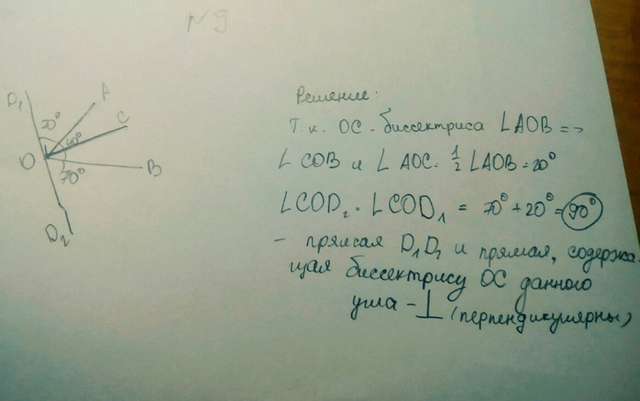 №9
D₁
A
70°
C
40°
O
B
70°
D₂
Решение:
Т.к. ОС - биссектриса ∠AOB =>
∠COB и ∠AOC = 1/2 ∠AOB = 20°
∠COD₂ = ∠COD₁ = 70° + 20° = 90°
- прямая D₁D₂ и прямая, содержа-
щая биссектрису ОС данного
угла - ⊥ (перпендикулярны)